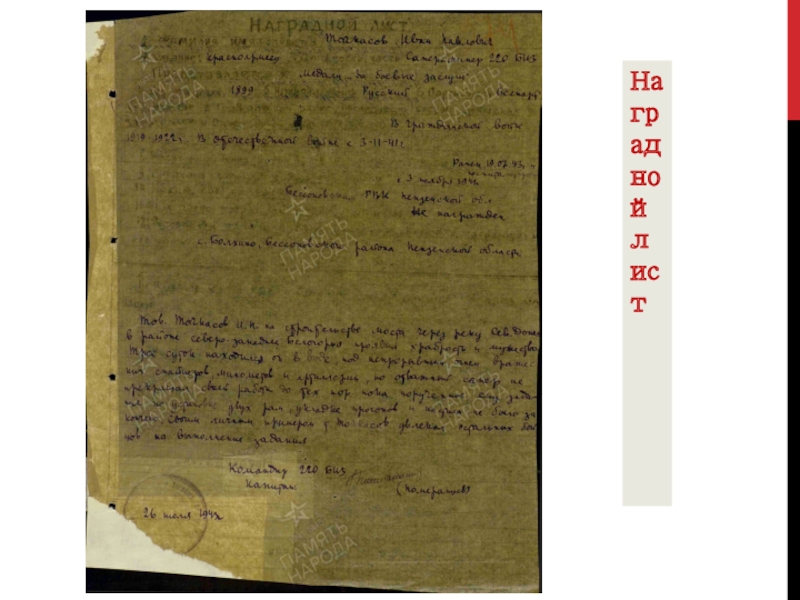 НАГРАДНОЙ ЛИСТ
Точкасов Иван Павлович
красноармеец Сапер 220 БИЗ
медаль за боевые заслуги
1899 Русский Беспарт
В гражданской войне
1919-1922г. В отечественной войне с 3-11-41г
Ранен 10.07.43г
с 3 ноября 1941г
Бессоновским РВК Пензенской обл
Не награжден
с. Бессоновского района Пензенской области
Тов. Точкасов И.П на строительстве моста через реку Сев Донец
в районе северо-западнее проявил храбрость и мужество
Трое суток находился он в воде под непрерывным огнем враже-
ских снайперов, минометов и артиллерии, но отважный сапер не
прекращал своей работы до тех пор пока порученное ему зада-
ние по установке двух рам, укладке прогонов и не было за
кончено. Своим личным примером т. Точкасов увлекал остальных бой
цов на выполнение задания
Командир 220 БИЗ
Капитан
26 июля 1943г
ПАМЯТЬ
НАРОДА
ПАМЯТЬ
НАРОДА
ПАМЯТЬ
НАРОДА
ПАМЯТЬ
НАРОДА
ПАМЯТЬ
НАРОДА
ПАМЯТЬ
НАРОДА
На
гр
ад
но
й
л
ис
т